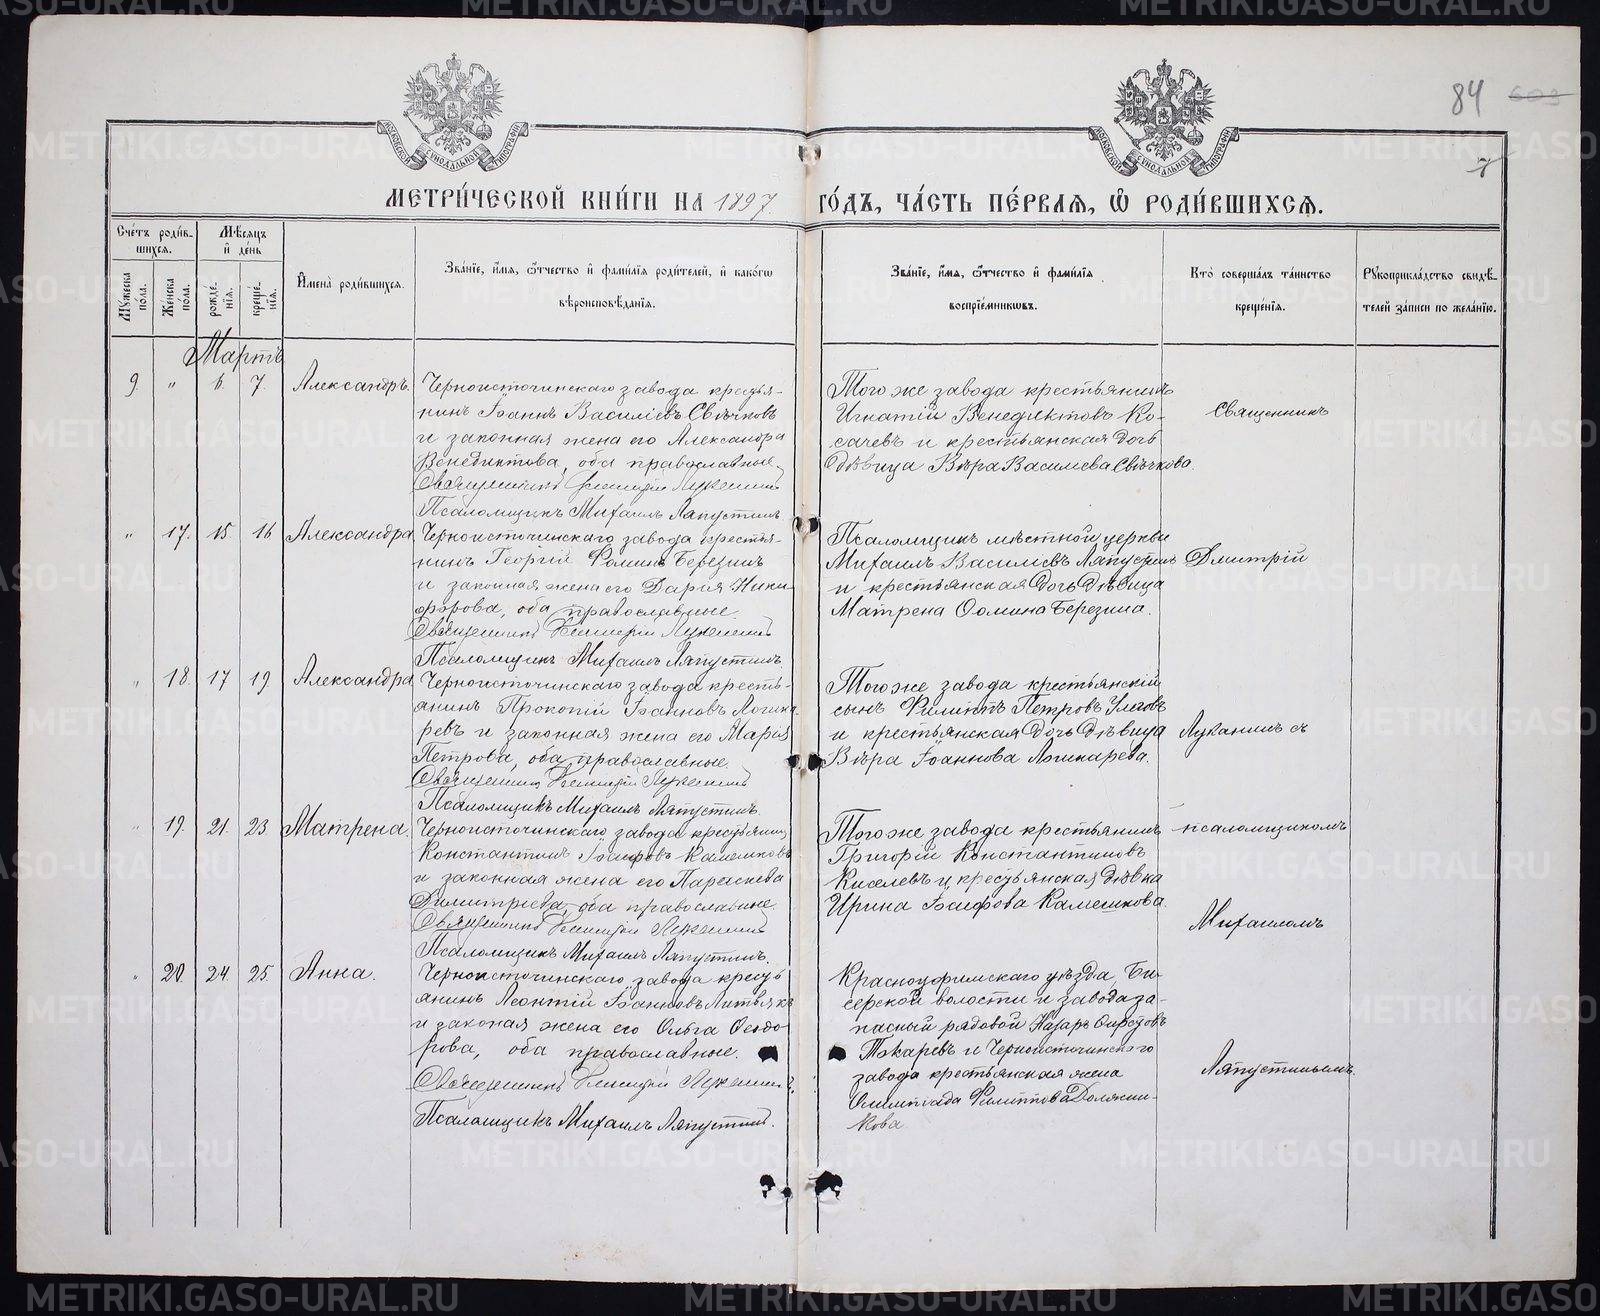 84 603
7
МЕТРИ́ЧЕСКОЙ КНИ́ГИ НА 1897. ГО́ДЪ, ЧА́СТЬ ПЕ́РВАЯ, Ѡ РОДИ́ВШИХСЯ.
Сче́тъ роди́вшихся.
Му́жеска по́ла.
Же́нска по́ла.
Мѣ́сяцъ и де́нь
рожде́нїя.
креще́нїя.
И́мена роди́вшихся.
Зва́нїе, и́мя, ѻ́тчество и фами́лїя роди́телей, и како́гѡ
вѣроисповѣ́данїя.
Зва́нїе, и́мя, ѻ́тчество и фами́лїя
воспрїе́мникѡвъ.
Кто̀ соверша́лъ та́инство
креще́нїя.
Рꙋкоприкла́дство свидѣ́-
телей за́писи по жела́нїю.
Мартъ
9 " 6. 7. Александръ.
Черноисточинскаго завода кресья-
нинъ Іоаннъ Василіевъ Свѣчковъ
и законная жена его Александра
Венедиктова, оба православные.
Священникъ Димитрій Луканинъ
Псаломщикъ Михаилъ Ляпустинъ
Того же завода крестьянинъ
Игнатій Венедиктовъ Ко-
сачевъ и крестьянская дочь
дѣвица Вѣра Василіева Свѣчкова.
Священникъ
" 17. 15 16 Александра
Черноисточинскаго завода крестья-
нинъ Георгій Ѳоминъ Березинъ
и законная жена его Дарія Ники-
форова, оба православные.
Священникъ Димитрій Луканинъ
Псаломщикъ Михаилъ Ляпустинъ
Псаломщикъ мѣстной церкви
Михаилъ Василіевъ Ляпустинъ
и крестьянская дочь дѣвица
Матрена Ѳомина Березина.
Дмитрій
" 18. 17 19 Александра
Черноисточинскаго завода кресть-
янинъ Прокопій Іоанновъ Логина-
ревъ и законная жена его Марія
Петрова, оба православные.
Священникъ Димитрій Луканинъ
Псаломщикъ Михаилъ Ляпустинъ.
Того же завода крестьянскій
сынъ Филиппъ Петровъ
и крестьянская дочь дѣвица
Вѣра Іоаннова
Луканинъ съ
" 19. 21. 23 Матрена.
Черноисточинскаго завода кресьянинъ
Константинъ Іосифовъ Камешковъ
и законная жена его Параскева
Димитріева, оба православные.
Священникъ Димитрій Луканинъ
Псаломщикъ Михаилъ Ляпустинъ.
Того же завода крестьянинъ
Григорій Константиновъ
Киселевъ и кресьянская дѣвка
Ирина Іосифова Камешкова.
псаломщикомъ
Михаиломъ
" 20. 24. 25. Анна.
Черноисточинскаго завода кресь
янинъ Леонтій Іоанновъ
и законая жена его Ольга Ѳеодо-
рова, оба православные.
Священникъ Димитрій Луканинъ
Псаломщикъ Михаилъ Ляпустинъ.
Красноуфимскаго уѣзда, Би-
серской волости и завода за-
пасный рядовой Назаръ
Токаревъ и Черноисточинскаго
завода крестьянская жена
Олимпіада Филиппова Долякши-
кова
Ляпустинымъ.